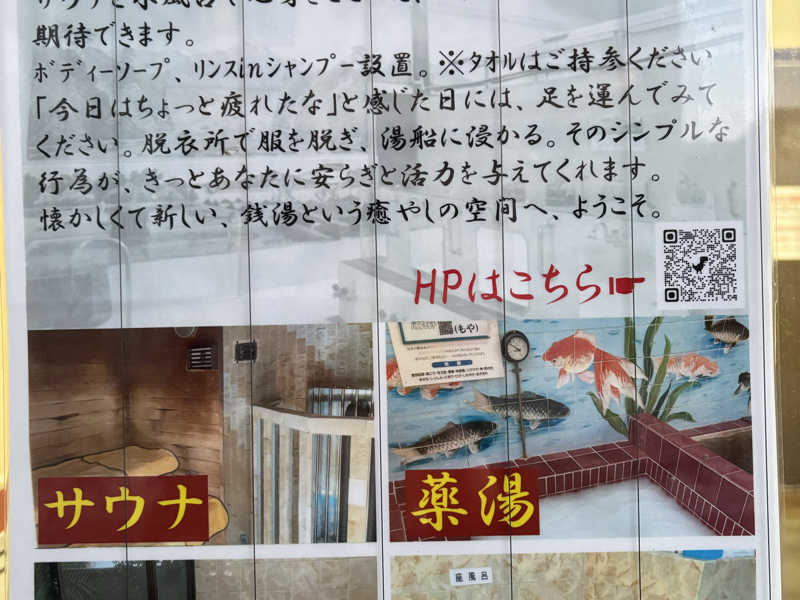 期待できます。
ボディーソープ、リンスinシャンプー設置。※タオルはご持参ください
「今日はちょっと疲れたな」と感じた日には、足を運んでみて
ください。脱衣所で服を脱ぎ、湯船に浸かる。そのシンプルな
行為が、きっとあなたに安らぎと活力を与えてくれます。
懐かしくて新しい、銭湯という癒やしの空間へ、ようこそ。
HPはこちら☛
(もや)
サウナ
薬湯
座風呂